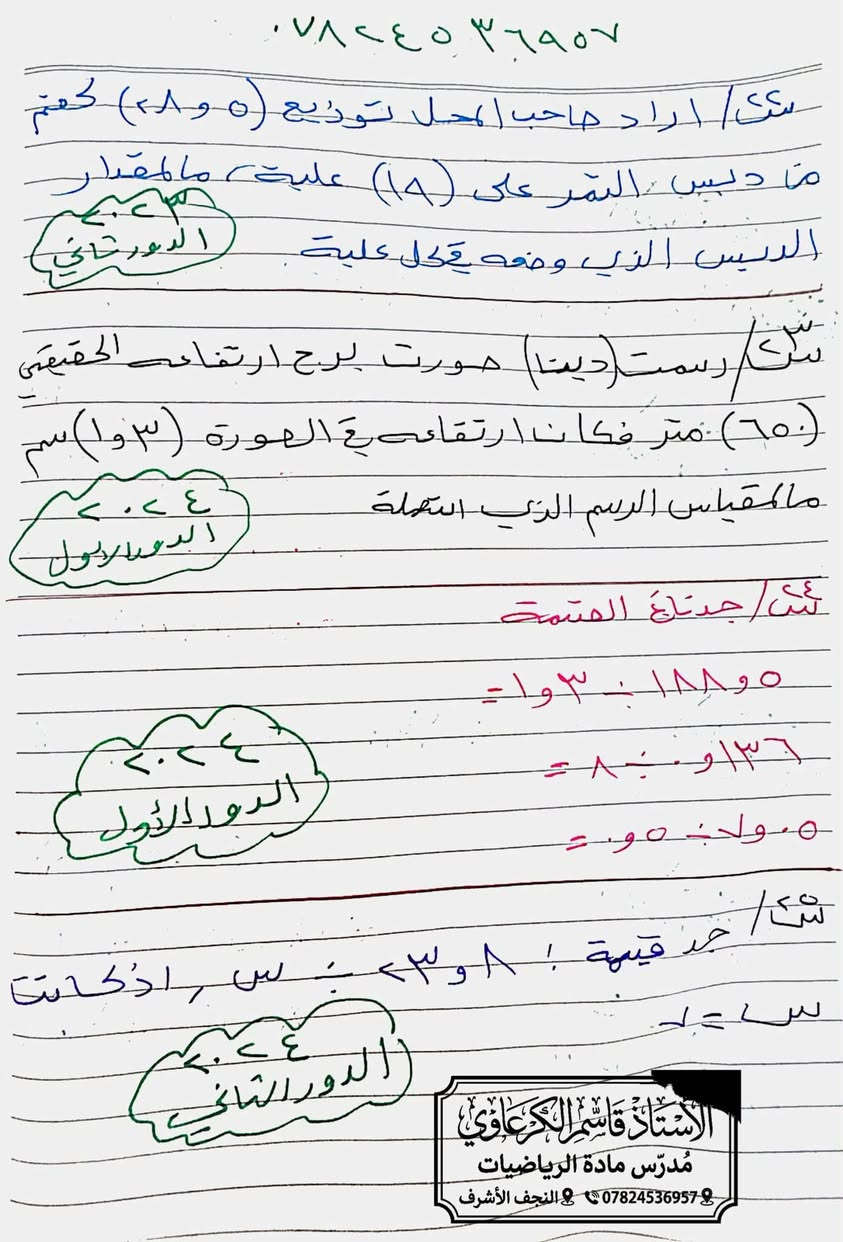 ٠٧٨٢٤٥٣٦٩٥٧
س٢٢/ اراد صاحب المحل توزيع (٥ و ٢٨) كغم
من دبس التمر على (١٩) علبة، مالمقدار
الدبس الذي وضعه في كل علبة
٢٠٢٣
الدور ثاني
س٢٣/ رسمت (دينا) صورت برج ارتفاعه الحقيقي
(٦٥٠) متر فكان ارتفاعه في الصورة (٣ و ١) سم
مالمقياس الرسم الذي استعملة
٢٠٢٤
الدور الاول
س٢٤/ جد ناتج القسمة
٥ و ١٨٨ ÷ ٣ و ١ =
١٣٦ و ٠ ÷ ٨ =
٠٥ و ٧ ÷ ٥ و ٠ =
٢٠٢٤
الدور الأول
س٢٥/ جد قيمة : ٨ و ٢٣ ÷ س , اذ كانت
س = ٧
٢٠٢٤
الدور الثاني
الأستاذ قاسم الكرعاوي
مُدرّس مادة الرياضيات
07824536957 النجف الأشرف